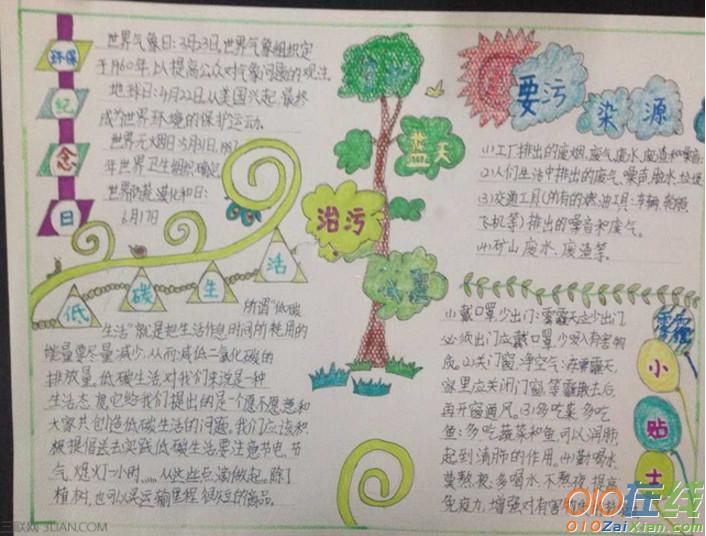 环保
纪
念
日
世界气象日:3月23日,世界气象组织定
于1960年,以提高公众对气象问题的观注.
地球日:4月22日,从美国兴起,最终
成为世界环境的保护运动.
世界无烟日:5月31日,1987
年世界卫生组织确定
世界防荒漠化和日:
6月17日
低
碳
生
活
所谓"低碳
生活"就是把生活作息时间所耗用的
能量要尽量减少,从而减低二氧化碳的
排放量,低碳生活对我们来说是一种
生活态度,它给我们提出的是个愿不愿意和
大家共创造低碳生活的问题。我们应该积
极提倡去实践低碳生活要注意节电、节
气、熄灯一小时……从这些点滴做起。除了
植树,也可以买运输里程很短的商品。
蓝天
治污
要污
染
源
(1)工厂排出的废烟、废气、废水、废渣和噪音;
(2)人们生活中排出的废气、噪声、脏水、垃圾
(3)交通工具(所有的燃油工具:车辆、轮船
飞机等)排出的噪音和废气。
(4)矿山废水、废渣等。
雾霾
小
贴
士
(1)戴口罩少出门:雾霾天应少出门
必须出门应戴口罩,少吸入有害物
质。(2)关门窗,净空气:在雾霾天
家里应关闭门窗,等雾散去后,
再开窗通风。(3)多吃菜多吃
鱼:多吃蔬菜和鱼,可以润肺,
起到清肺的作用。(4)勤喝水
莫熬夜:多喝水不熬夜,提高
免疫力,增强对有害
三联网 3LIAN.COM
010在线
010ZaiXian.com